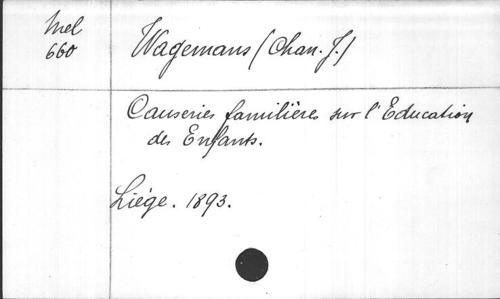 Mel
660
Wagemans (Chan. J.)
Causeries familières sur l'Education
des Enfants.
Liége. 1893.